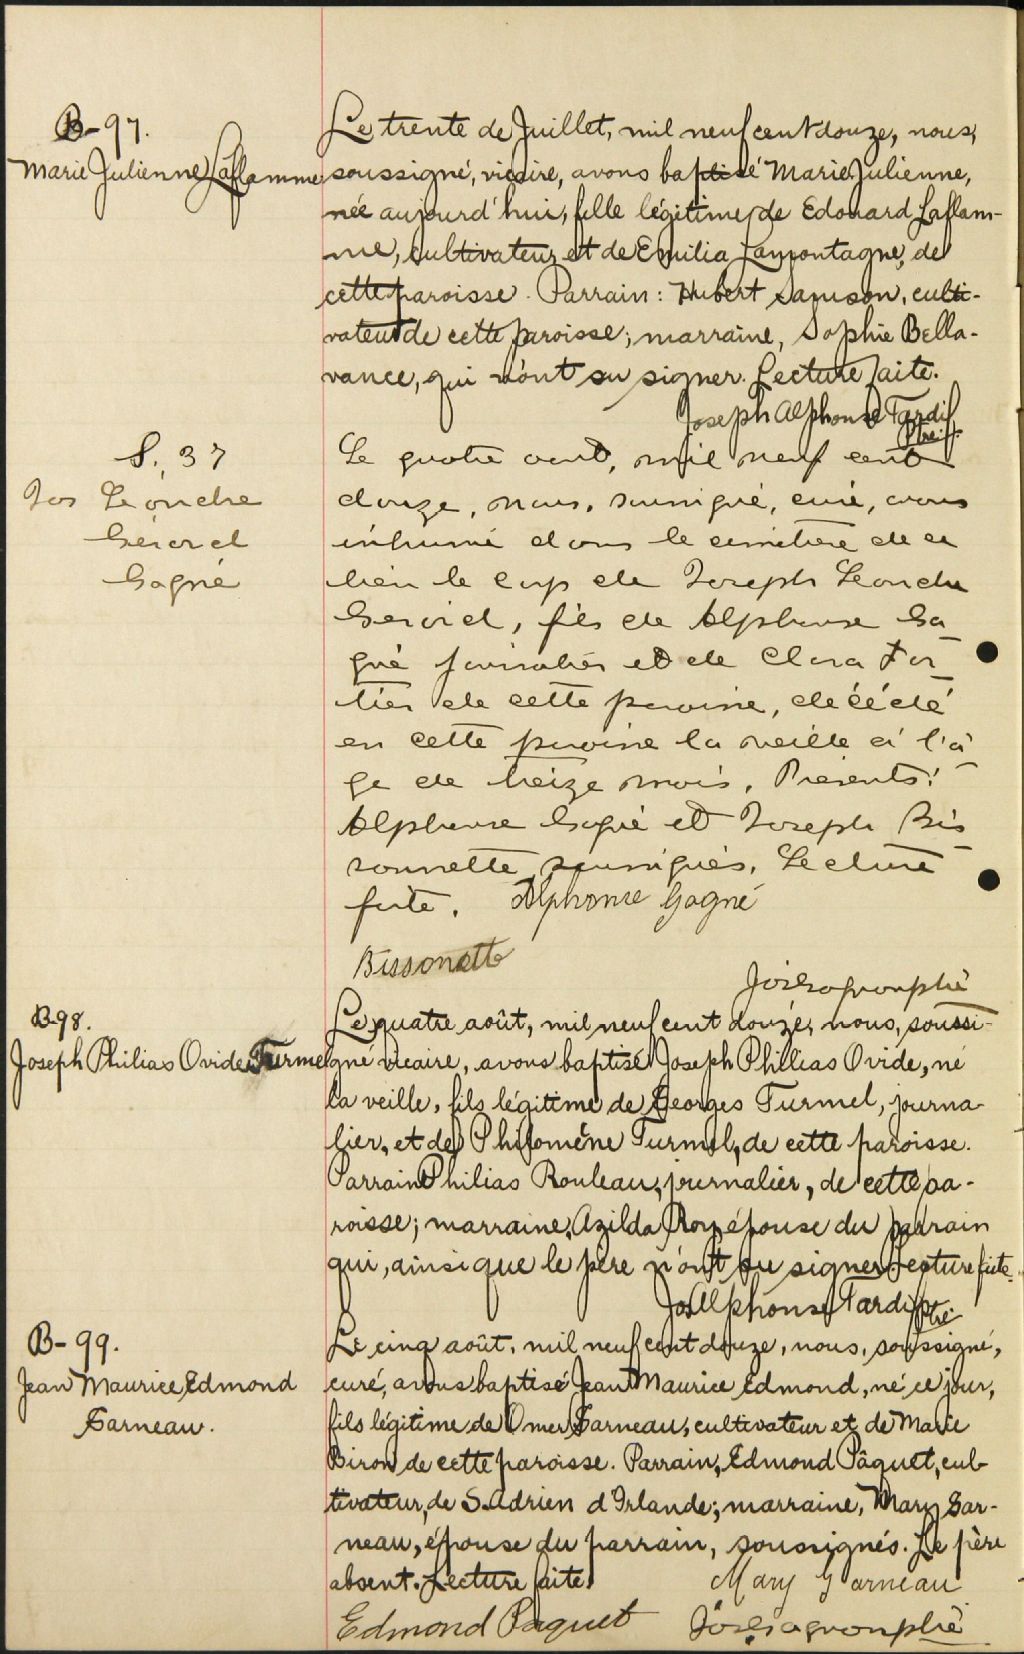 B-97.
Marie Julienne Laflamme
Le trente de Juillet, mil neuf cent douze, nous,
soussigné, vicaire, avons baptisé Marie Julienne,
née aujourd'hui, fille légitime de Edouard Laflam-
me, cultivateur et de Emilia Lamontagne, de
cette paroisse. Parrain: Hubert Samson, culti-
vateur de cette paroisse; marraine, Sophie Bella-
vance, qui n'ont su signer. Lecture faite.
Joseph Alphonse Tardif
Ptre
S. 37
Jos Léondre
Gérard
Gagné
Le quatre août, mil neuf cent
douze, nous, soussigné, curé, avons
inhumé dans le cimetière de ce
lieu le corps de Joseph Léondre
Gérard, fils de Alphonse Ga
gné journalier et de Clara For
tier de cette paroisse, décédé
en cette paroisse la veille à l'â
ge de treize mois. Présents:
Alphonse Gagné et Joseph Bis
sonnette soussignés. Lecture
faite. Alphonse Gagné
Bissonette
B-98.
Joseph Philias Ovide Turmel
Le quatre août, mil neuf cent douze, nous, soussi-
gné vicaire, avons baptisé Joseph Philias Ovide, né
la veille, fils légitime de Georges Turmel, journa-
lier, et de Philomène Turmel, de cette paroisse.
Parrain Philias Rouleau, journalier, de cette pa-
roisse; marraine, Azilda Roy, épouse du parrain
qui, ainsi que le père n'ont su signer. Lecture faite.
Jos Alphonse Tardif ptre
B-99.
Jean Maurice Edmond
Garneau.
Le cinq août, mil neuf cent douze, nous, soussigné,
curé, avons baptisé Jean Maurice Edmond, né ce jour,
fils légitime de Omer Garneau, cultivateur et de Marie
Biron de cette paroisse. Parrain, Edmond Pâquet, cul-
tivateur, de S. Adrien d'Irlande; marraine, Mary Gar-
neau, épouse du parrain, soussignés. Le père
absent. Lecture faite.
Mary Garneau
Edmond Paquet